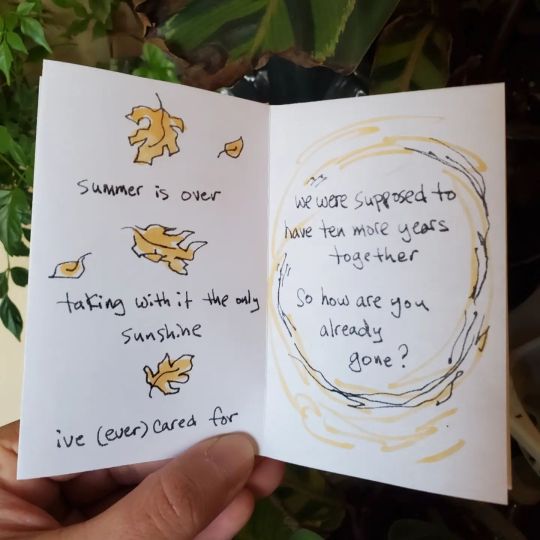 summer is over
taking with it the only
sunshine
ive (ever) cared for
we were supposed to
have ten more years
together
So how are you
already
gone?